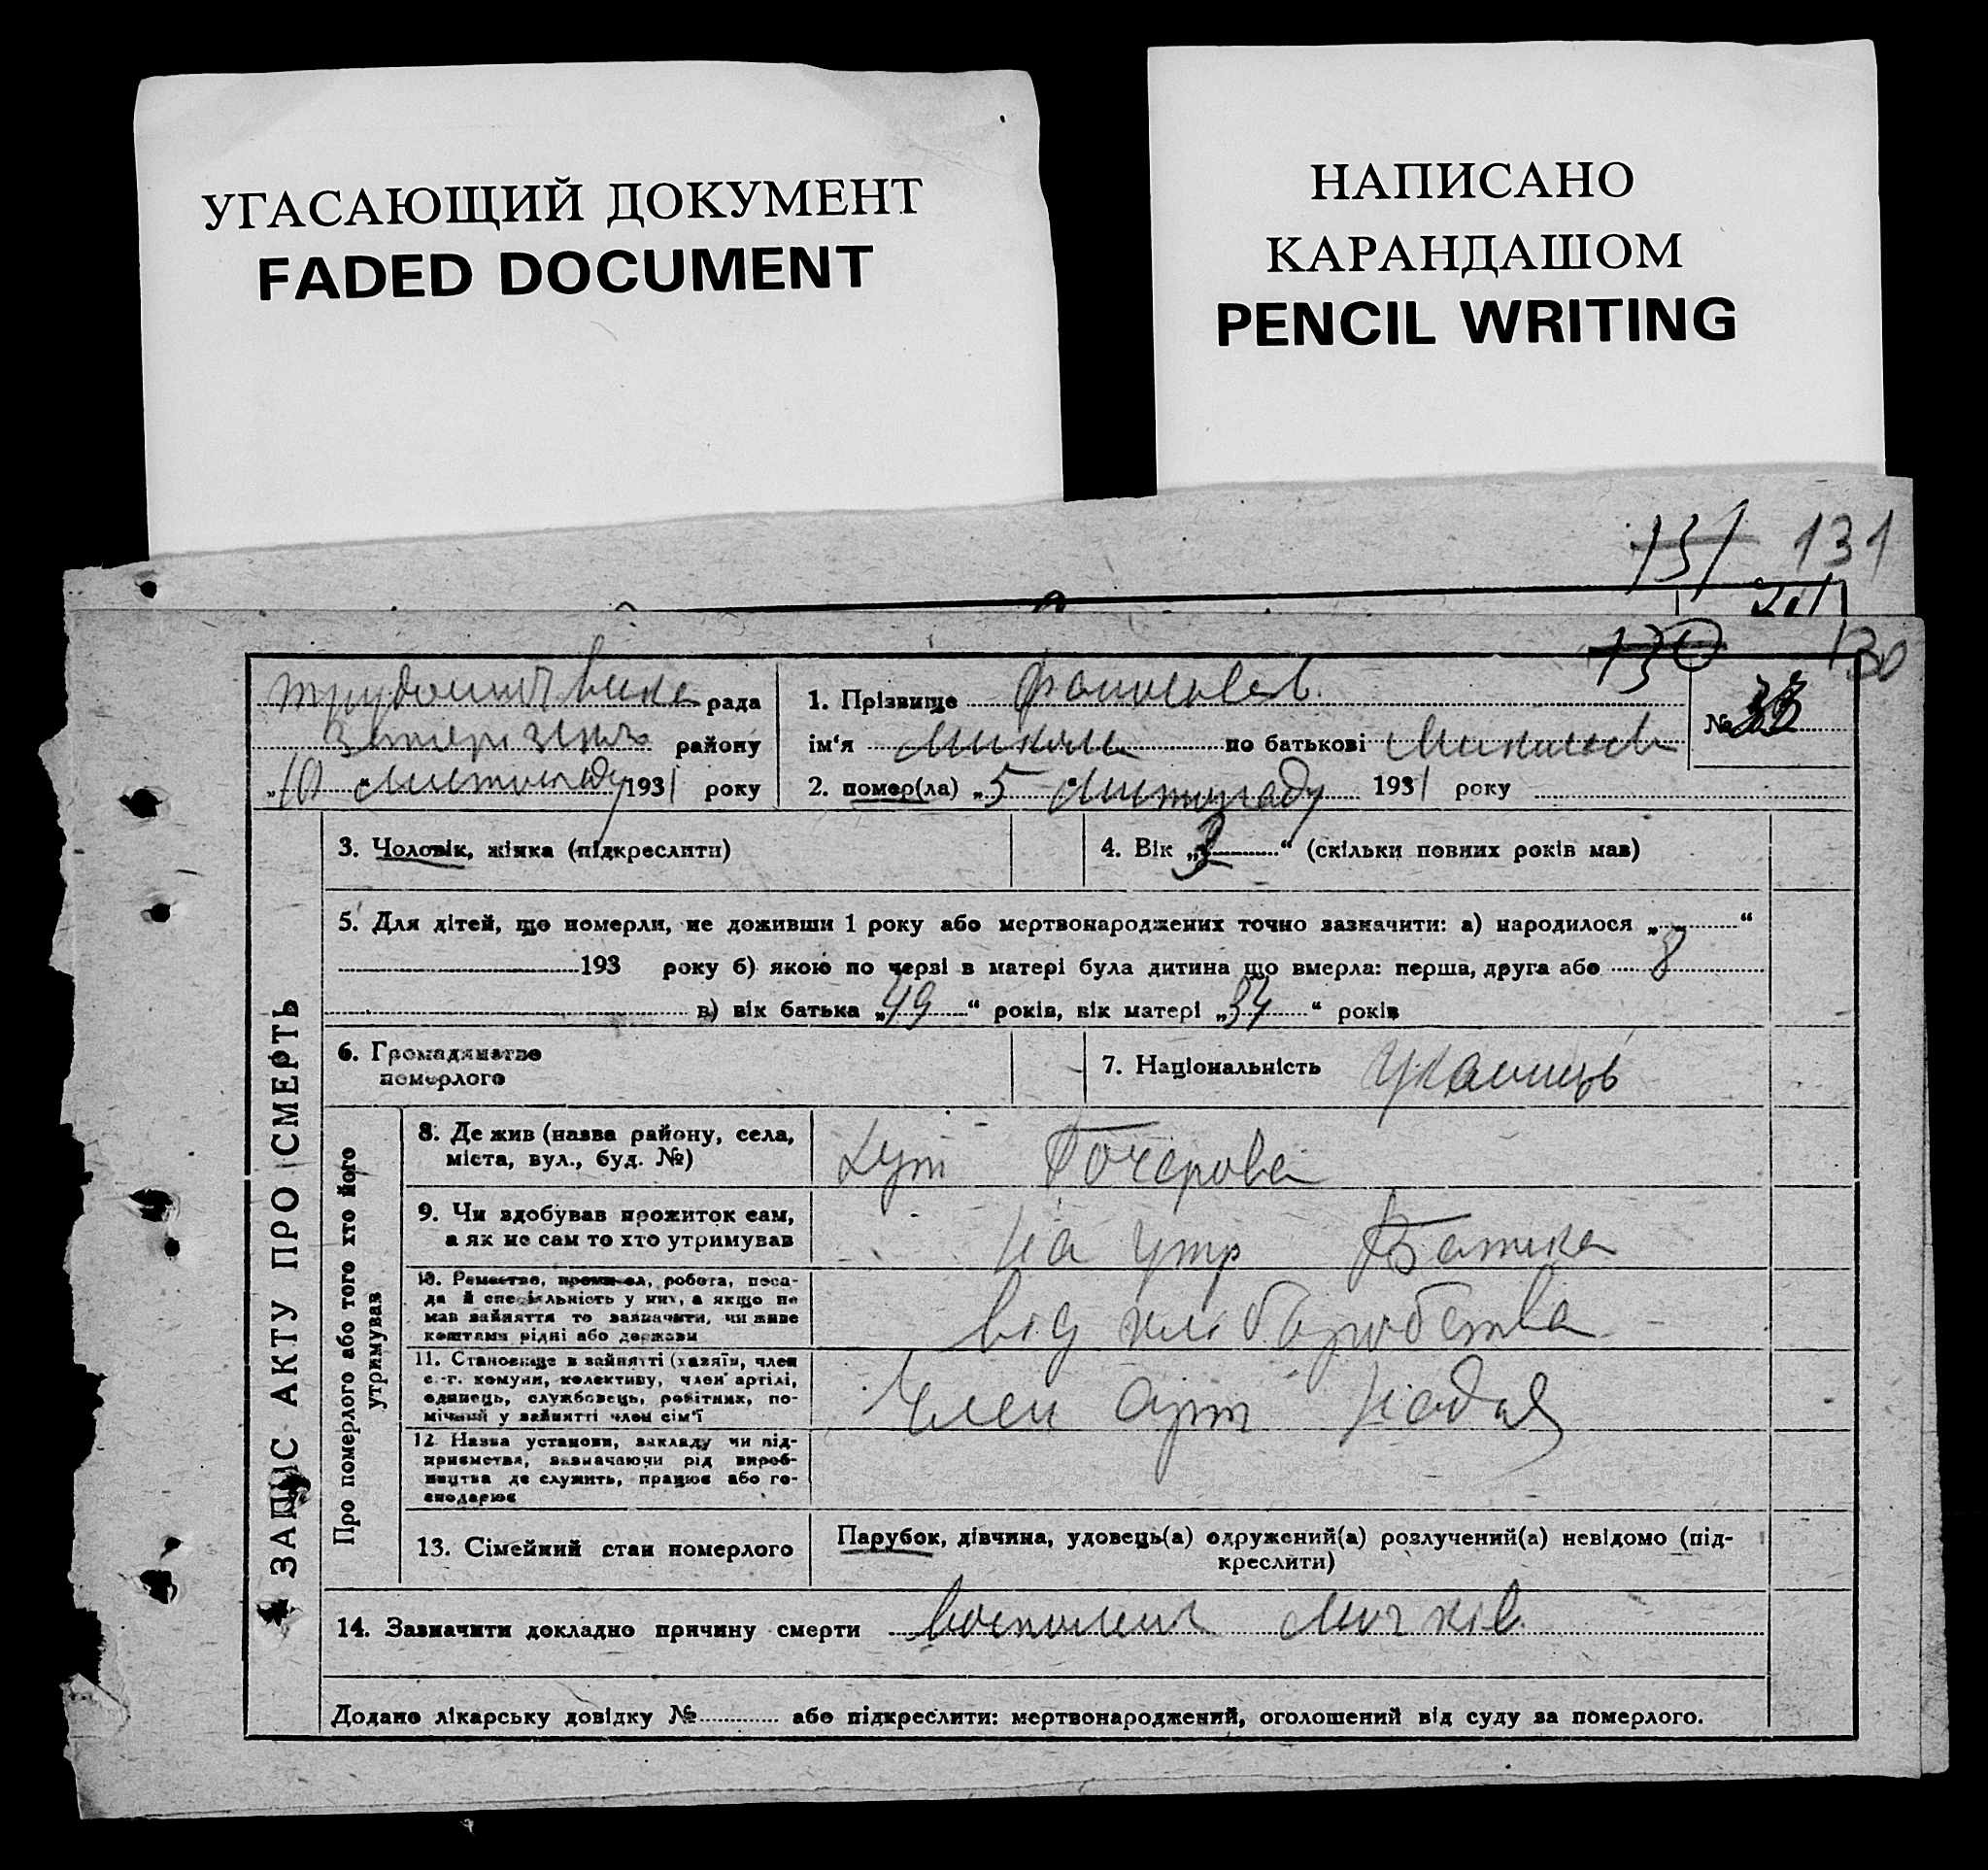 УГАСАЮЩИЙ ДОКУМЕНТ
FADED DOCUMENT
НАПИСАНО
КАРАНДАШОМ
PENCIL WRITING
131 131
130 130
рада
району
„10“ листопаду 1931 року
1. Прізвище
№ 33
ім'я Микола по батькові
2. помер(ла) „5“ листопаду 1931 року
ЗАПИС АКТУ ПРО СМЕРТЬ
3. Чоловік, жінка (підкреслити)
4. Вік „3“ (скільки повних років мав)
5. Для дітей, що померли, не доживши 1 року або мертвонароджених точно зазначити: а) народилося „ “
193 року б) якою по черзі в матері була дитина що вмерла: перша, друга або 8
в) вік батька „49“ років, вік матері „34“ років
6. Громадянство
померлого
7. Національність Украинць
Про померлого або того хто його
утримував
8. Де жив (назва району, села,
міста, вул., буд. №)
Хут Бочарова
9. Чи здобував прожиток сам,
а як не сам то хто утримував
на утр Батька
10. Ремество, промисел, робота, поса-
да й спеціальність у них, а якщо не
мав зайняття то зазначити, чи живе
коштами рідні або держави
від хліборобства
11. Становище в зайнятті (хазяїн, член
с.-г. комуни, колективу, член артілі,
одинець, службовець, робітник, по-
мічний у зайнятті член сім'ї
Член арт
12. Назва установи, закладу чи під-
приємства, зазначаючи рід вироб-
ництва де служить, працює або го-
сподарює
13. Сімейний стан померлого
Парубок, дівчина, удовець(а) одружений(а) розлучений(а) невідомо (під-
креслити)
14. Зазначити докладно причину смерти
Додано лікарську довідку № або підкреслити: мертвонароджений, оголошений від суду за померлого.